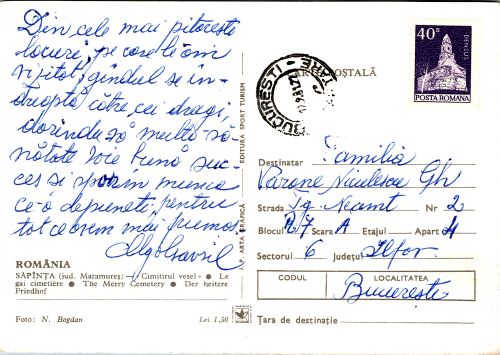 Din cele mai pitorești
locuri, pe care le-om
vizitat, gîndul se în-
dreaptă către cei dragi,
dorindu-vă multă să-
nătate voie bună suc-
ces și spor în munca
ce-o depuneți, pentru
tot ce avem mai frumos.
ROMÂNIA
SĂPÎNȚA (jud. Maramureș) — Cimitirul vesel • Le
gai cimetière • The Merry Cemetery • Der heitere
Friedhof
Foto: N. Bogdan Lei 1,50
I.P. ARTA GRAFICĂ EDITURA SPORT TURISM
CARTE POȘTALĂ
BUCUREȘTI
40 B
DENSUȘ
POSTA ROMANA
Destinatar Familia
Varone Niculescu Gh
Strada Tg. Neamt Nr 2
Blocul R7 Scara A Etajul Apart 4
Sectorul 6 Județul Ilfov
CODUL LOCALITATEA
București
Țara de destinație